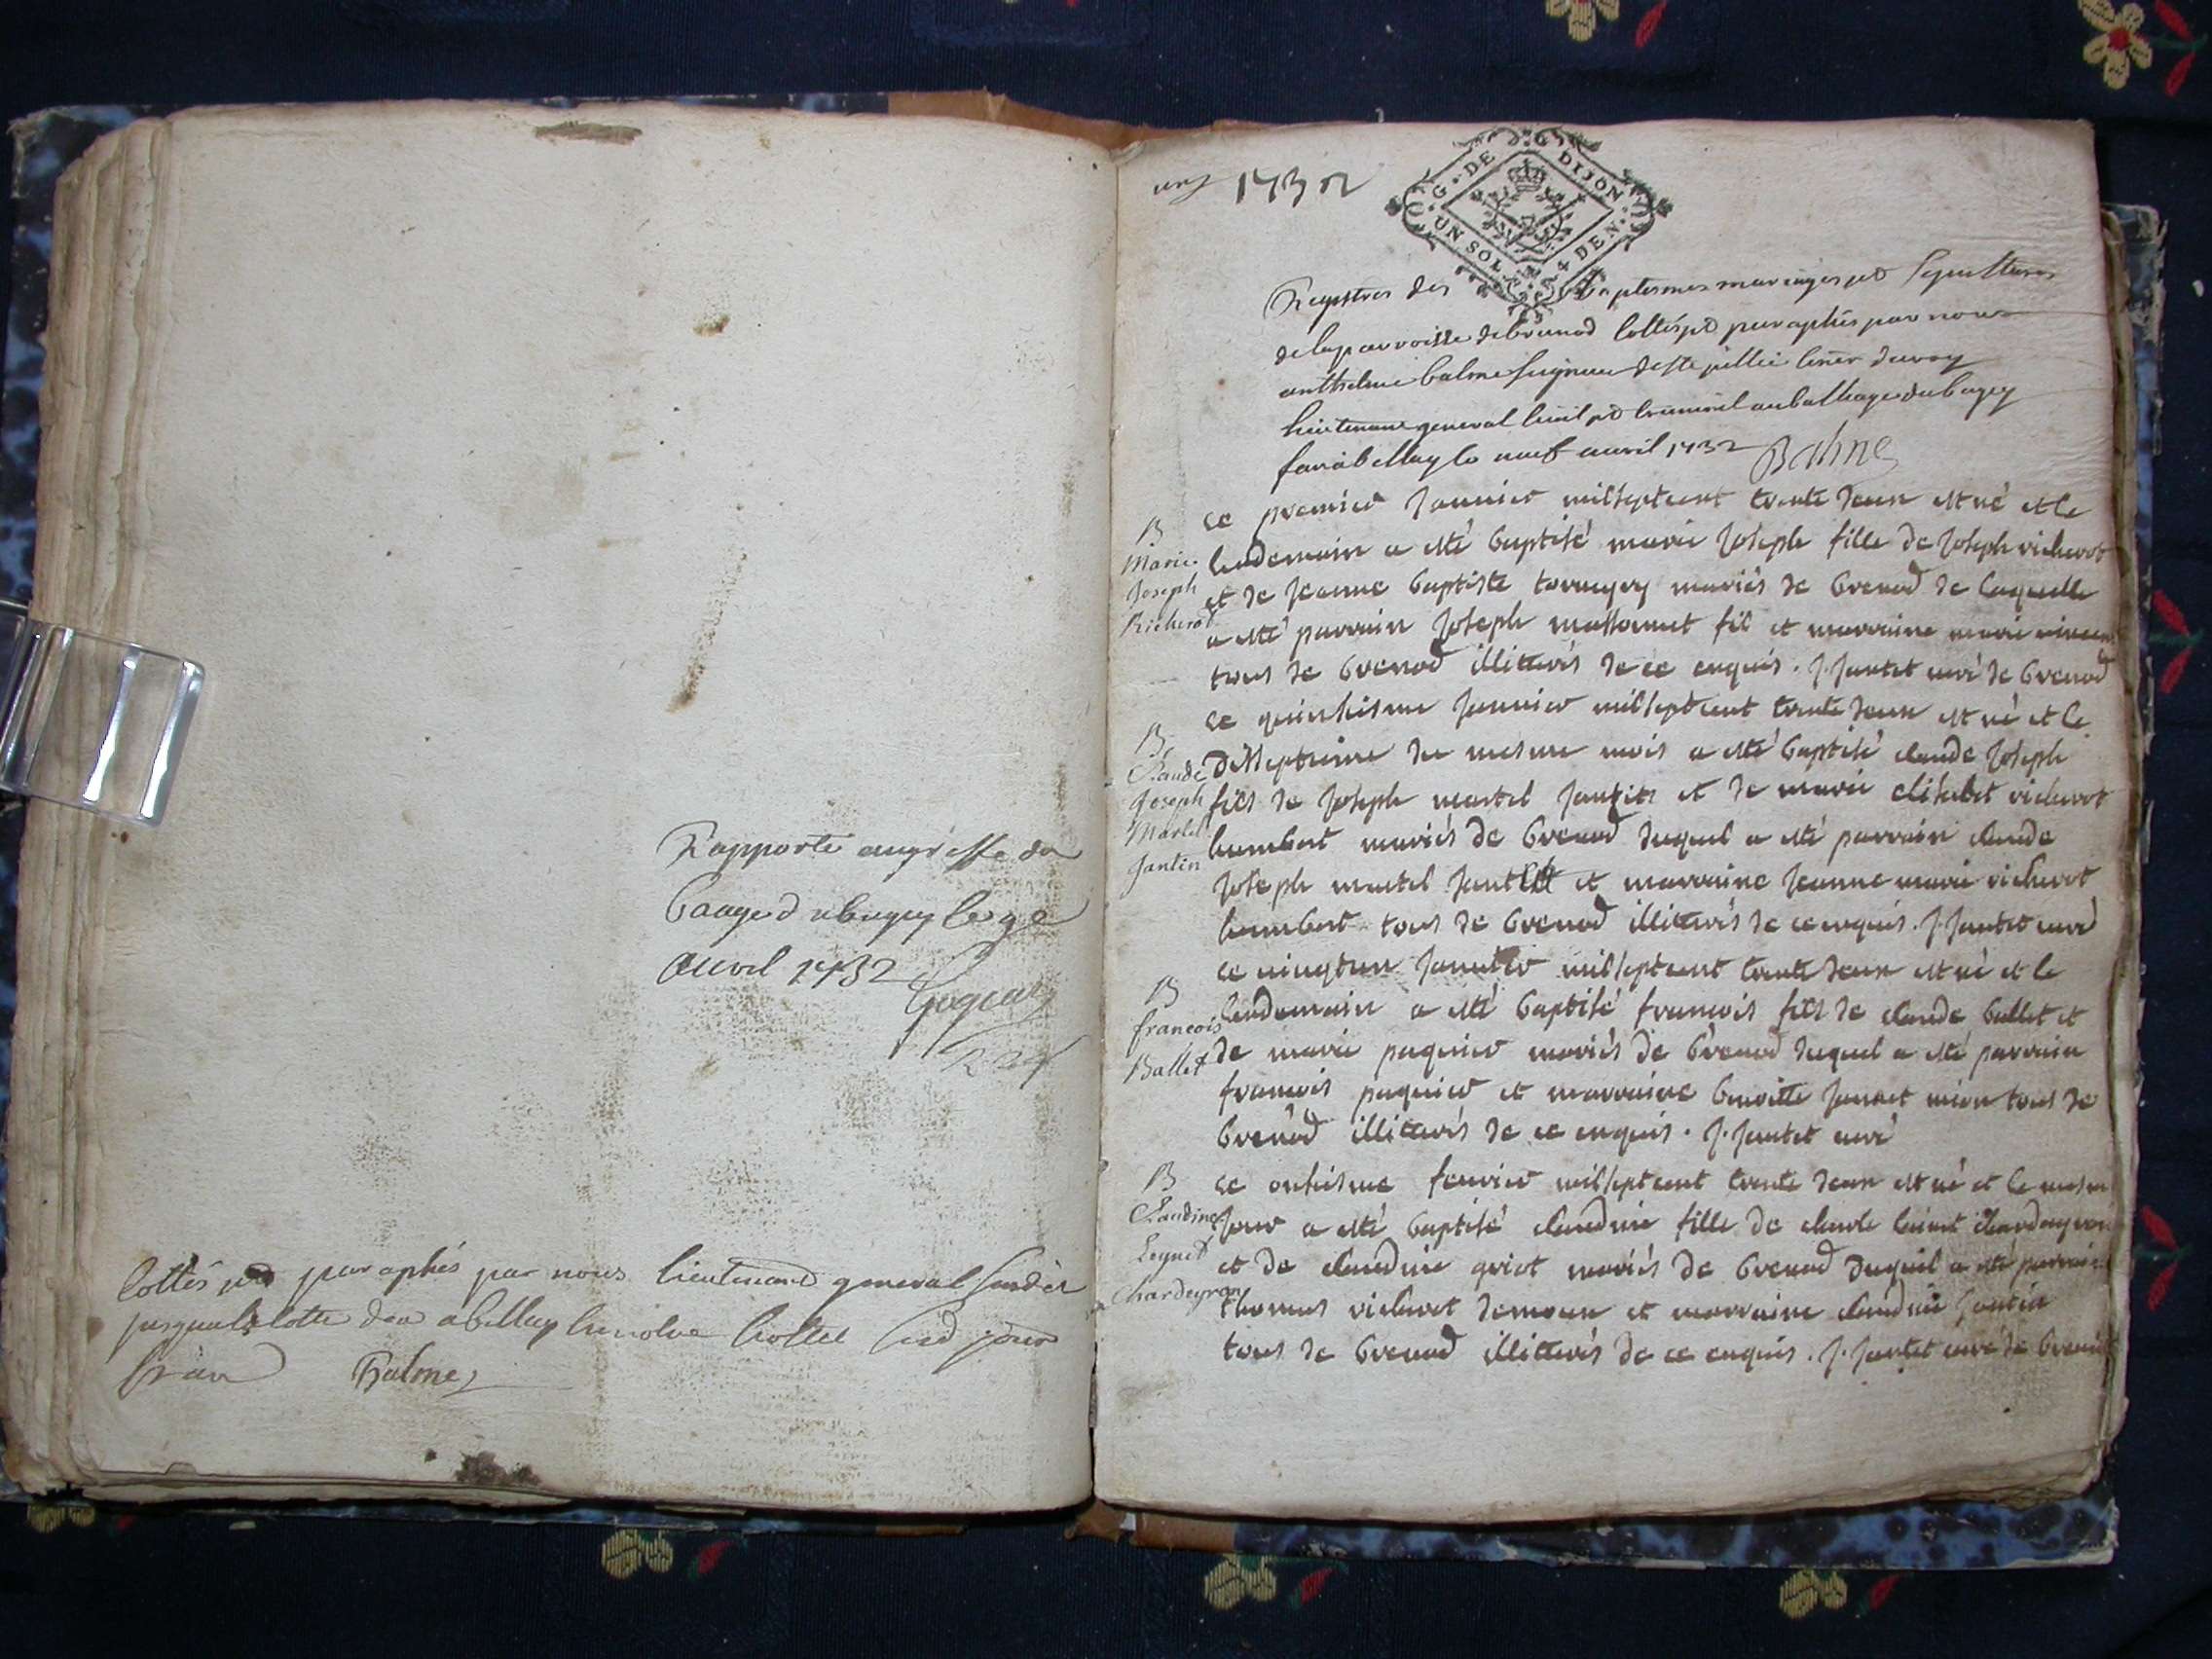 Rapporté au greffe du
Baage du bugey le 9e
Avril 1732
Cottés et paraphés par nous lieutenant general
jusqua la cotte a bellay hostel jour
Balme
1732
G. DE DIJON
UN SOL 4 DEN.
Registres des baptesmes mariages et sepultures
de la parroisse de brenod cottés et paraphés par nous
anthelme balme seigneur de ste jullie
lieutenant general civil et criminel au balliage du bugey
fait a bellay le neuf avril 1732 Balme
B
Marie
Joseph
Richerod
ce premier janvier mil septcent trente deux est né et le
lendemain a esté baptisé marie joseph fille de joseph richerot
et de jeanne baptiste mariés de brenod de laquelle
a esté parrain joseph massonnet fils et marraine marie
tous de brenod illiterés de ce enquis. j. jantet curé de brenod
B
Claude
Joseph
Martel
Jantin
ce quinhisme janvier mil septcent trente deux est né et le
disseptieme du mesme mois a esté baptisé claude joseph
fils de joseph martel jantin et de marie elisabet richerot
humbert mariés de brenod duquel a esté parrain claude
joseph martel et marraine jeanne marie richerot
humbert tous de brenod illiterés de ce enquis. j. jantet curé
B
francois
Ballet
ce vingtun janvier mil septcent trente deux est né et le
lendemain a esté baptisé francois fils de claude ballet et
de marie paquier mariés de brenod duquel a esté parrain
francois paquier et marraine benoitte tous de
brenod illiterés de ce enquis. j. jantet curé
B
Claudine
Chardeyron
ce onhisme fevrier mil septcent trente deux est né et le mesme
jour a esté baptisé claudine fille de
et de claudine mariés de brenod duquel a esté parrain
thomas richerot et marraine claudine jantin
tous de brenod illiterés de ce enquis. j. jantet curé de brenod